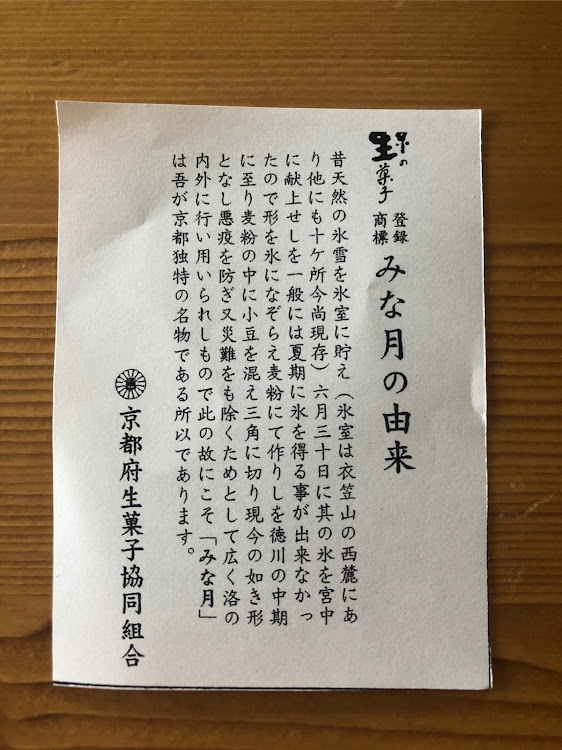 京の生菓子
登録商標
みな月の由来
昔天然の氷雪を氷室に貯え(氷室は衣笠山の西麓にあ
り他にも十ケ所今尚現存)六月三十日に其の氷を宮中
に献上せしを一般には夏期に氷を得る事が出来なかっ
たので形を氷になぞらえ麦粉にて作りしを徳川の中期
に至り麦粉の中に小豆を混え三角に切り現今の如き形
となし悪疫を防ぎ又災難をも除くためとして広く洛の
内外に行い用いられしもので此の故にこそ「みな月」
は吾が京都独特の名物である所以であります。
京都府生菓子協同組合